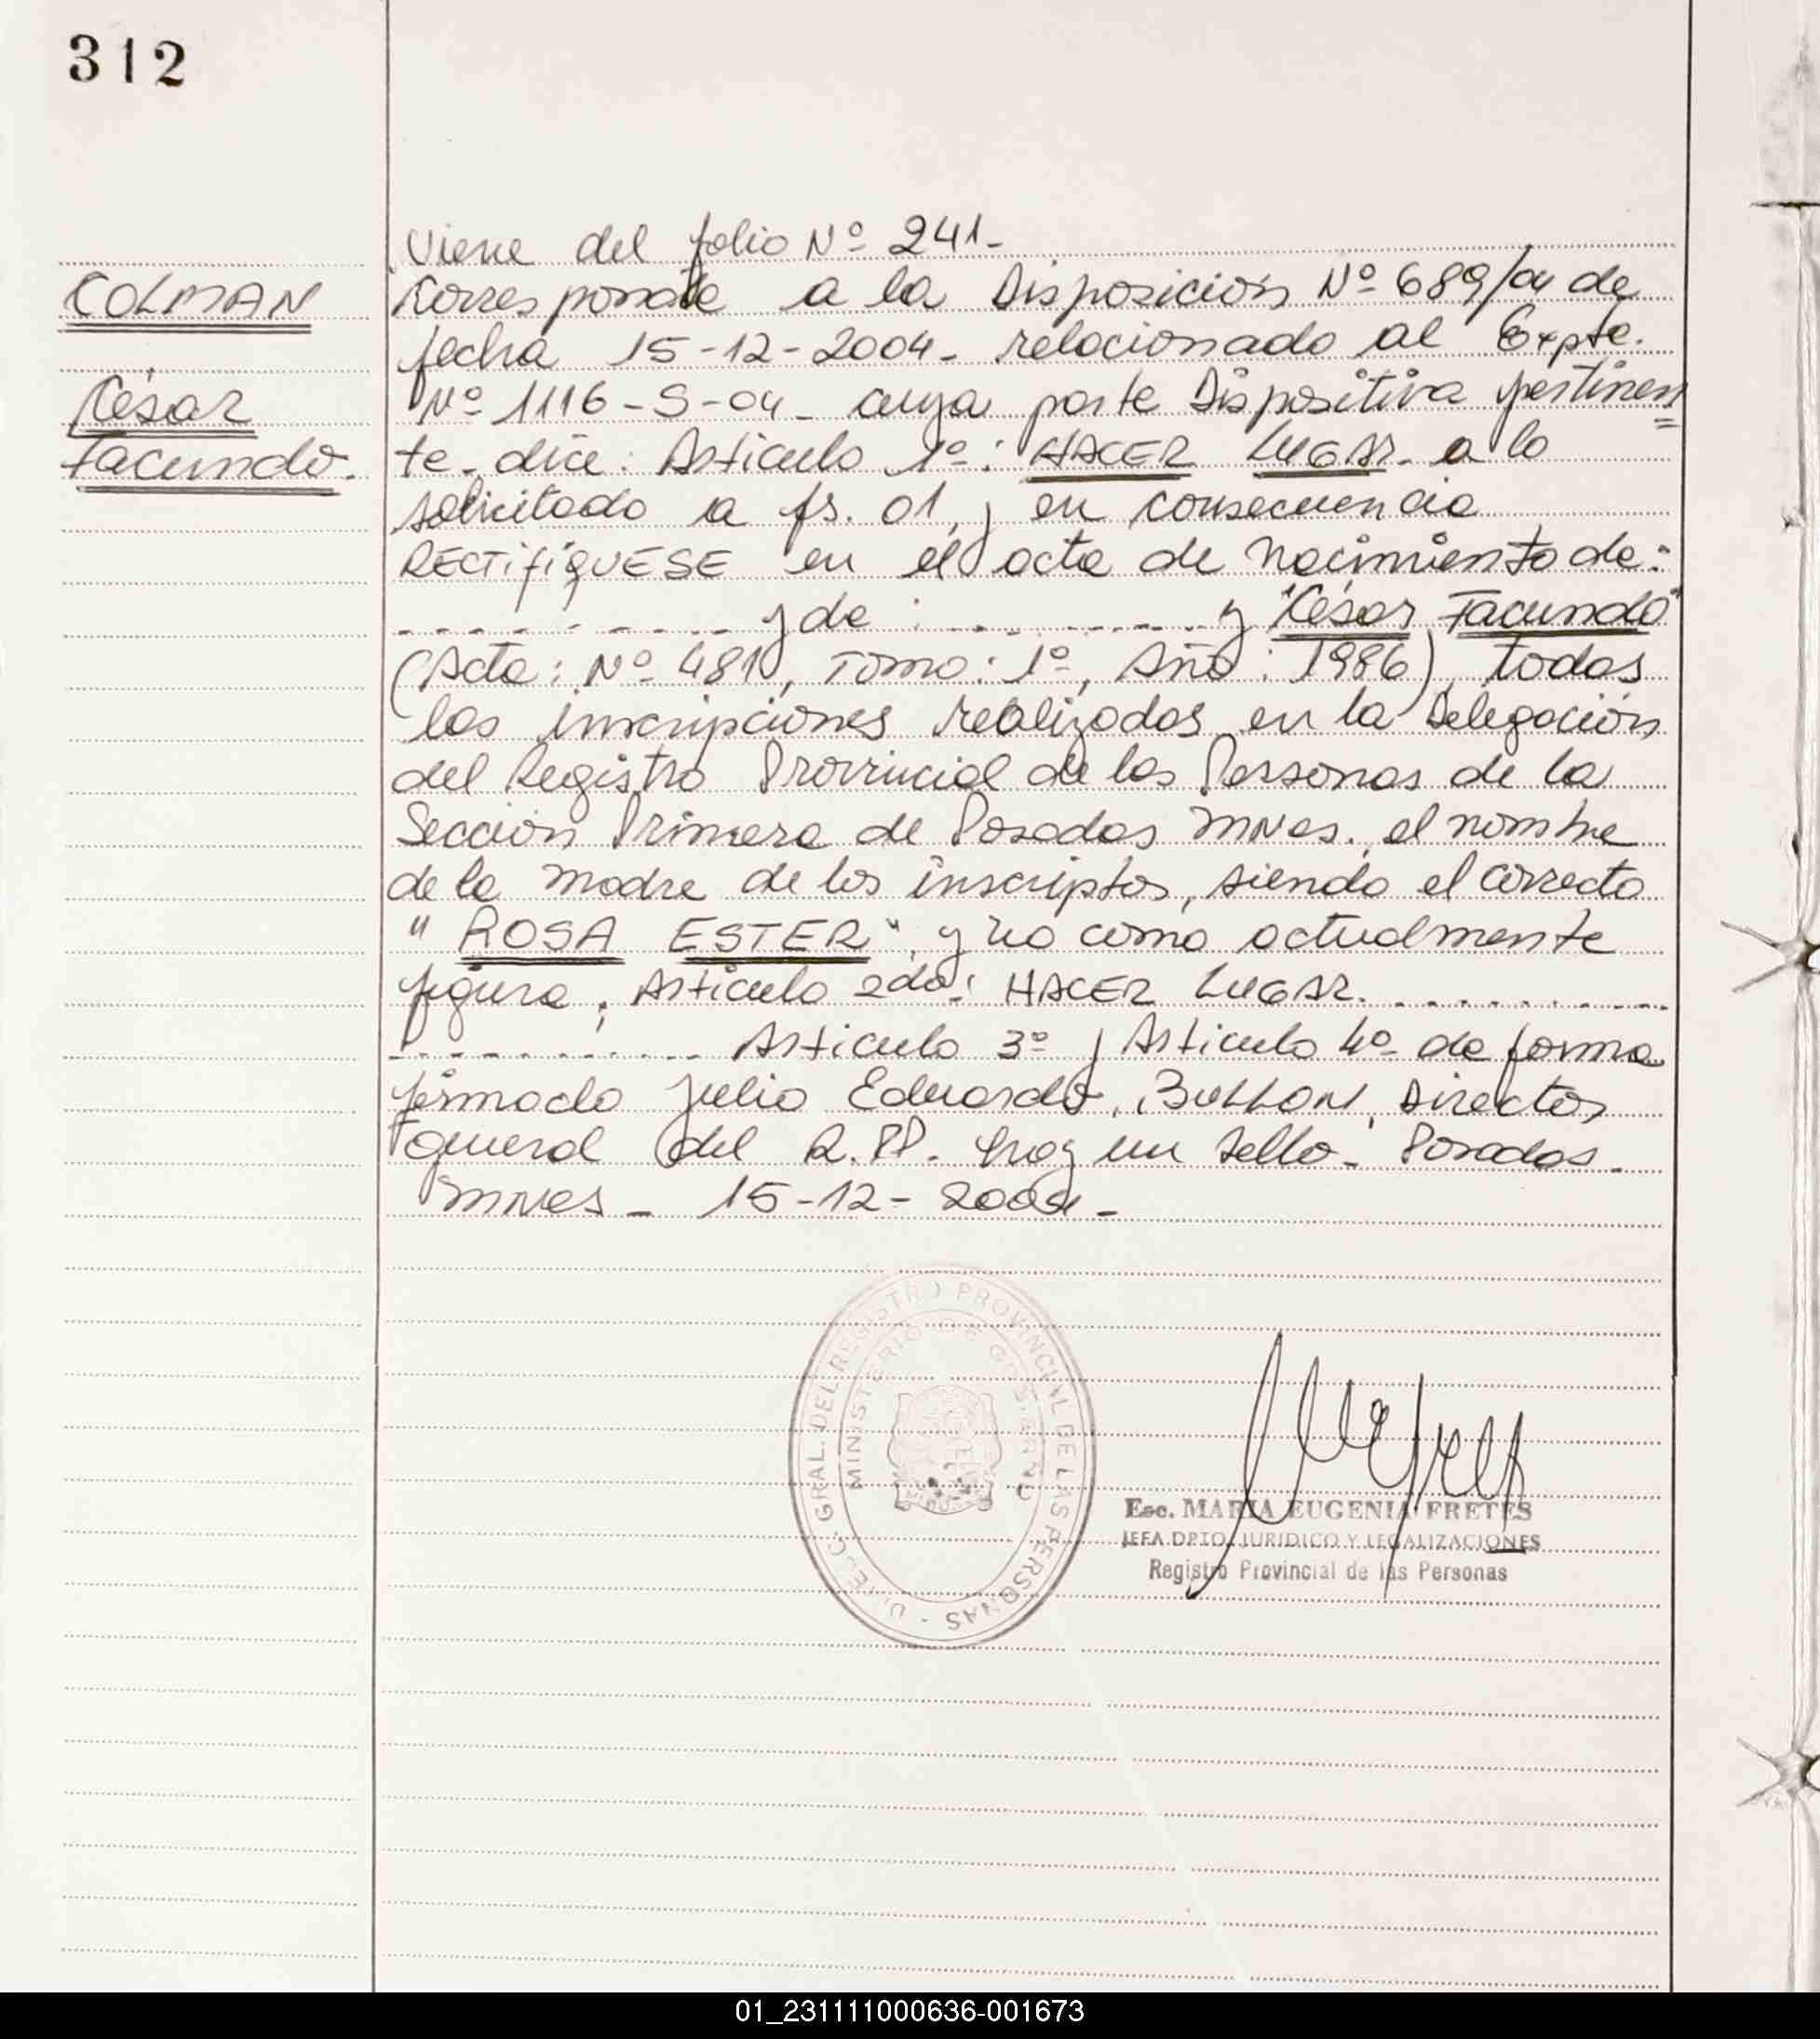 312
COLMAN
César
Facundo.
Viene del folio Nº 241-
Corresponde a la Disposición Nº 689/04 de
fecha 15-12-2004- relacionado al Expte.
Nº 1116-S-04- cuya parte Dispositiva pertinen
te- dice: Artículo 1º: HACER LUGAR- a lo
solicitado a fs. 01, y en consecuencia
RECTIFIQUESE en el acta de nacimiento de:
- - - - - - - - - - y de : - - - - - - - - - y "César Facundo"
(Acta: Nº 481, Tomo: 1º, Año: 1986), todas
las inscripciones realizadas en la Delegación
del Registro Provincial de las Personas de la
Sección Primera de Posadas Mnes. el nombre
de la madre de los inscriptos, siendo el correcto
"ROSA ESTER", y no como actualmente
figura; Artículo 2do: HACER LUGAR. - - - - - - - - - -
- - - - - - - - - - - Artículo 3º y Artículo 4º de forma
firmado Julio Eduardo, BULLON, Director
General del R.PP. hay un sello- Posadas-
Mnes- 15-12-2004-
DIRECC. GRAL. DEL REGISTRO PROVINCIAL DE LAS PERSONAS -
MINISTERIO DE GOBIERNO
Esc. MARIA EUGENIA FRETES
JEFA DPTO. JURIDICO Y LEGALIZACIONES
Registro Provincial de las Personas
01_231111000636-001673